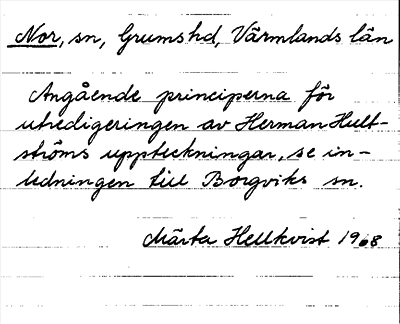 Nor, sn, Grums hd, Värmlands län
Angående principerna för
utredigeringen av Herman Hult-
ströms uppteckningar, se in-
ledningen till Borgviks sn.
Märta Hellkvist 1968